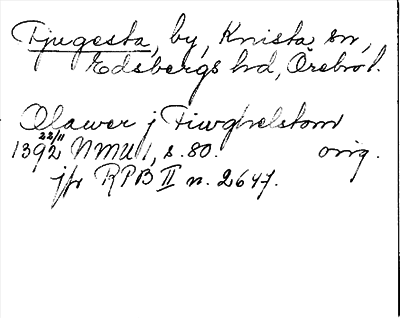 Tjugesta, by, Knista sn,
Edsbergs hd, Örebro l.
Olawer j Tiwghelstom
22/11
1392 NMU 1, s. 80. orig.
jfr RPB II n. 2647.